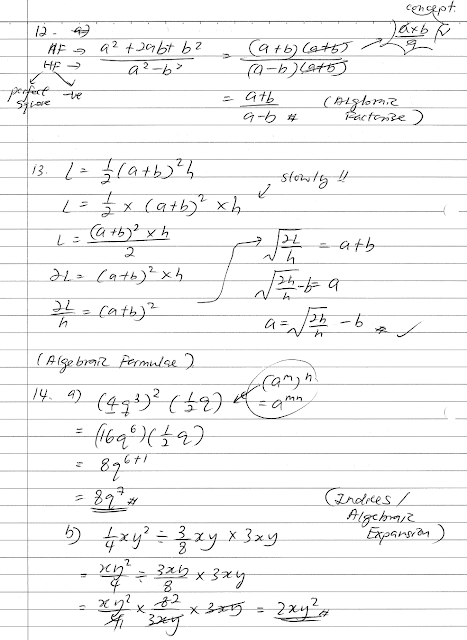 concept.
12. a²
AF → a² + 2ab + b² / a² - b² = (a+b)(a+b) / (a-b)(a+b) → a×b / a
HF →
perfect square -ve
= a+b / a-b # (Algebraic Factorise)
13. L = 1/2 (a+b)² h
L = 1/2 × (a+b)² × h slowly !!
L = (a+b)² × h / 2
2L = (a+b)² × h
2L/h = (a+b)²
→ √(2L/h) = a+b
√(2h/h) - b = a
a = √(2h/h) - b # ✓
(Algebraic Formulae)
14. a) (4q³)² (1/2 q) (aᵐ)ⁿ = aᵐⁿ
= (16q⁶)(1/2 q)
= 8q⁶⁺¹
= 8q⁷ #
(Indices / Algebraic Expansion)
b) 1/4 xy² ÷ 3/8 xy × 3xy
= xy²/4 ÷ 3xy/8 × 3xy
= xy²/4 1 × 8 2/3xy × 3xy = 2xy² #